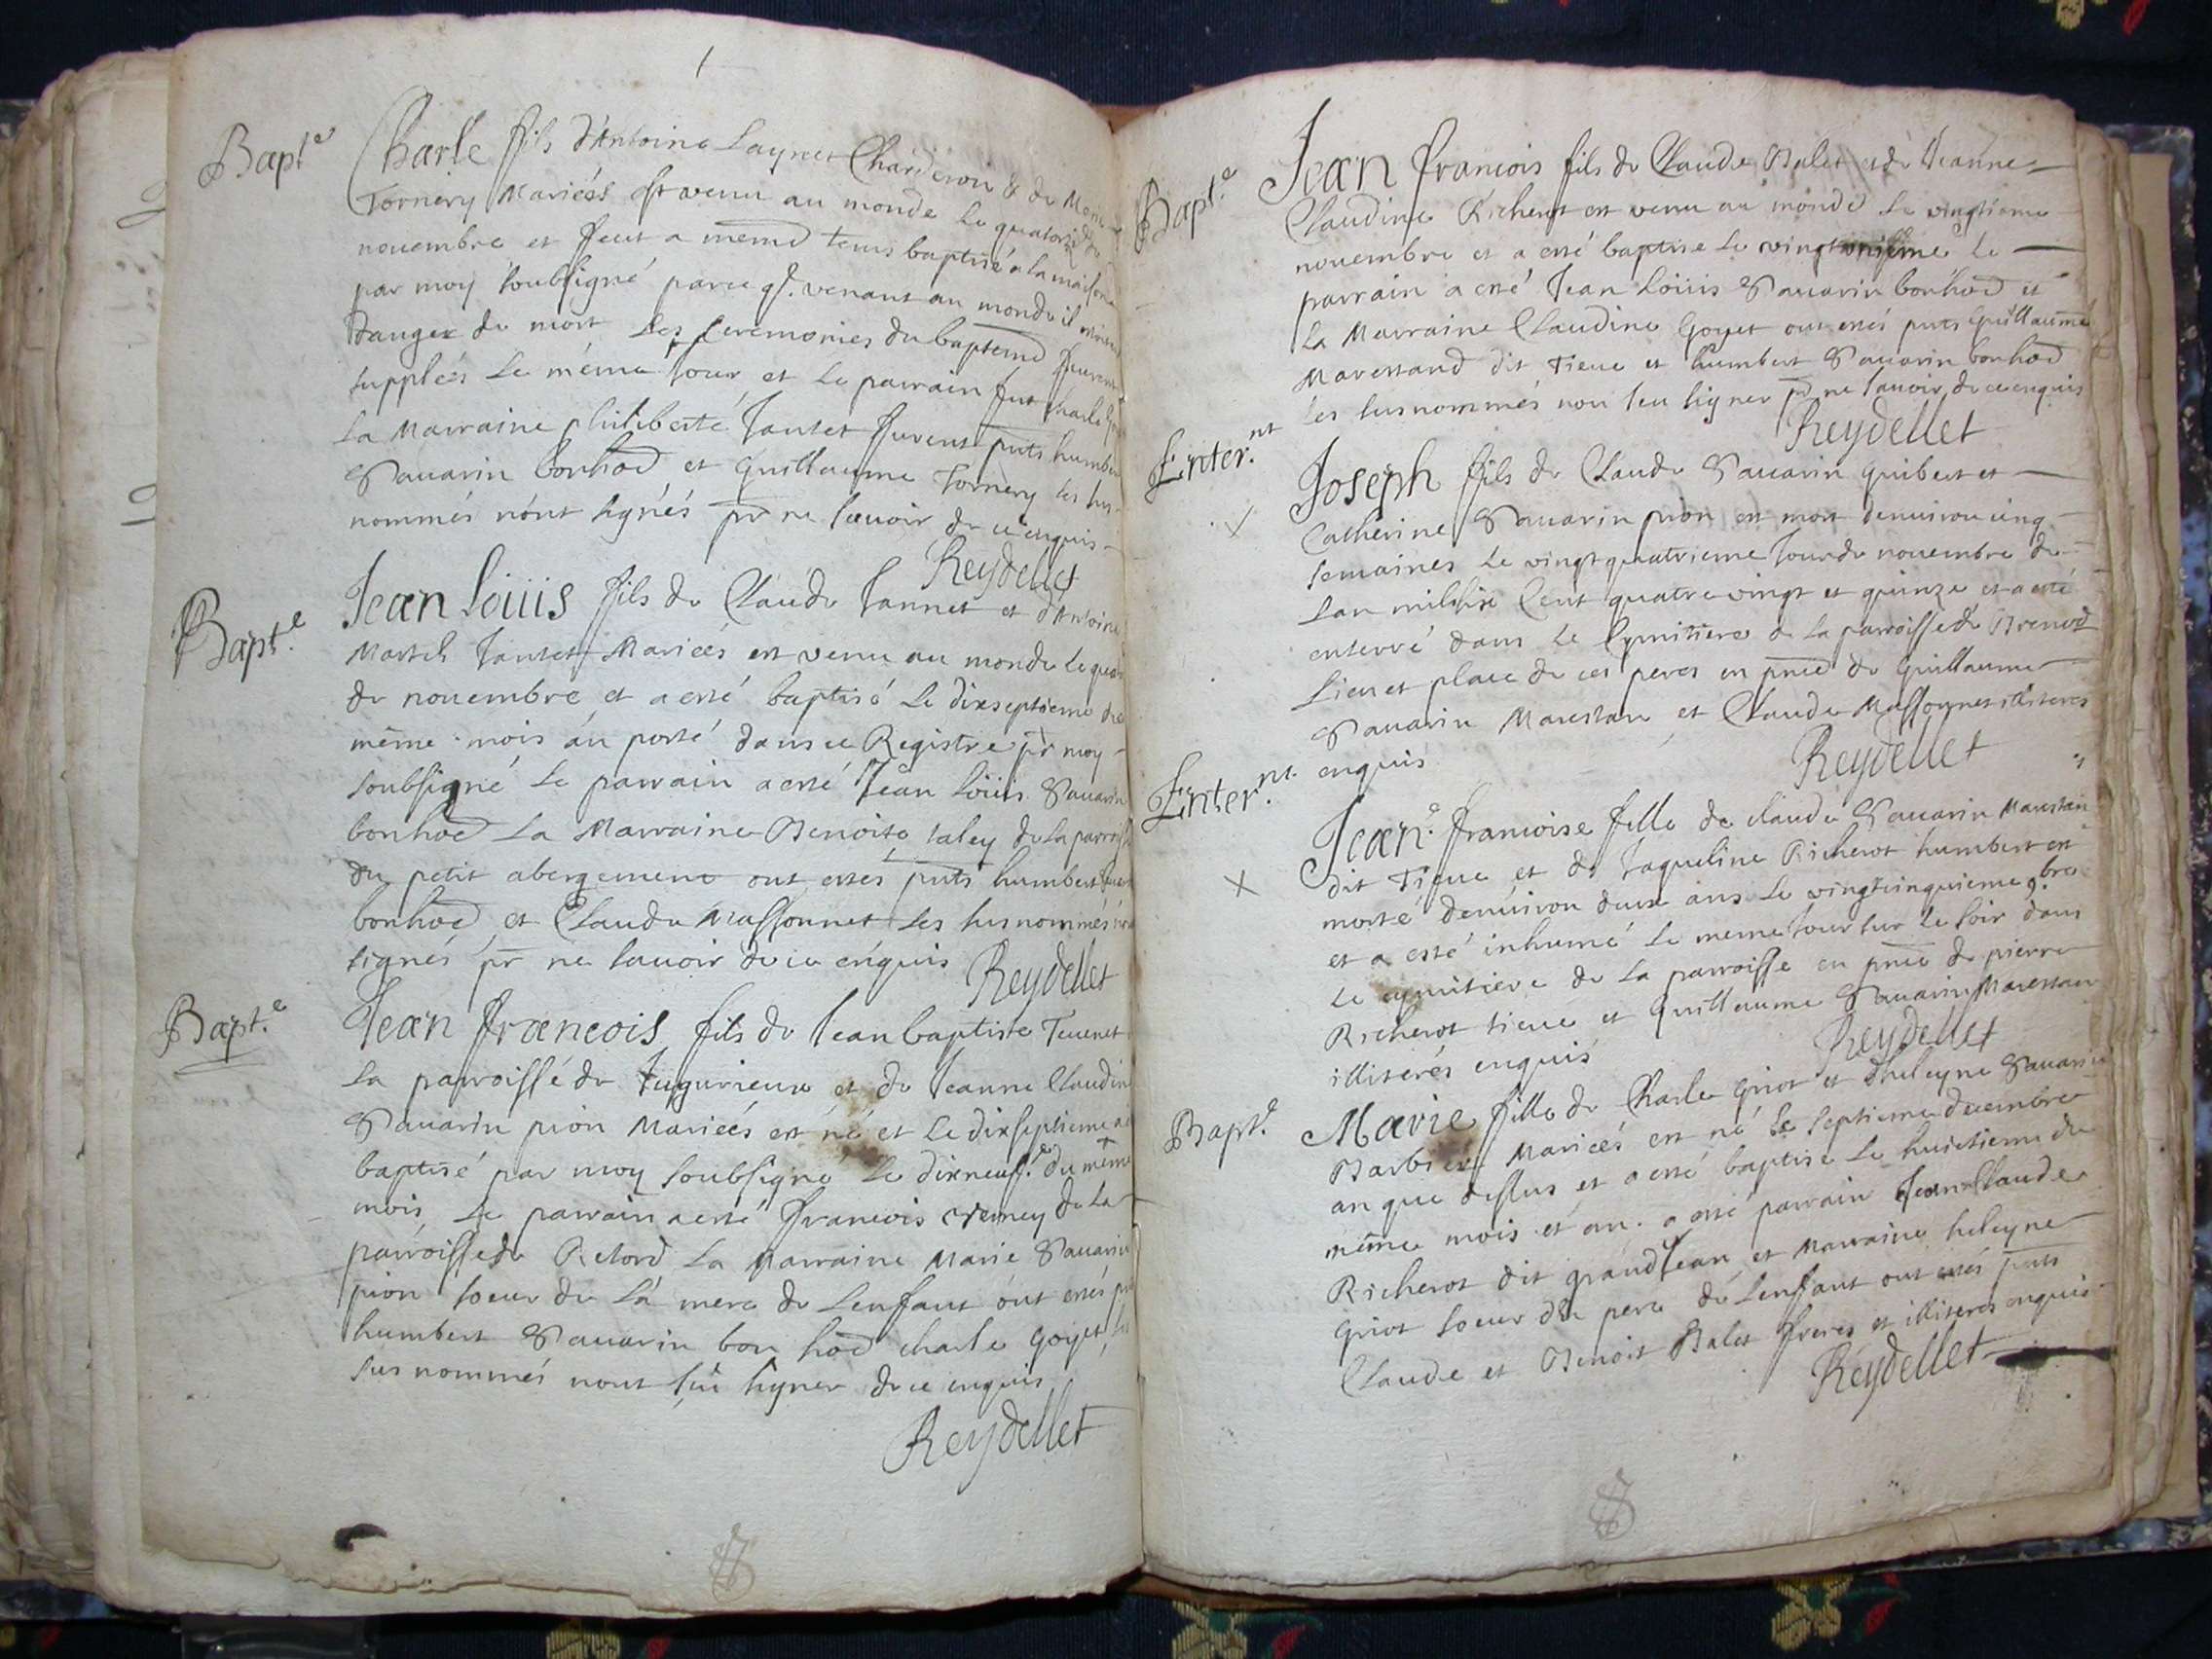 Bapt.e
Charle fils d'Antoine Laynet Charderon & de Marie
Tornery Mariéés est venu au monde le quatorze
nouembre et feut a meme tems baptisé a la maison
par moy soubsigné parce q. venant au monde il
danger de mort Les ceremonies du bapteme furent
supplées le méme Jour et le parrain fut charle
La Marraine philiberte Jantet furent pnts humbert
Sauarin bonhod et Guillaume Tornery les sus-
nommés n'ont signés pr ne sauoir de ce enquis-
Reydellet
Bapt.e
Jean Loüis fils de Claude Jannet et d'Antoine
Martel Jantet Mariéés est venu au monde le
de nouembre et a esté baptisé le dixseptieme du
même mois án porté dans ce Registre pr moy
soubsigné le parrain a esté Jean Loüis Sauarin
bonhod La Marraine Benoite taley de la parroisse
du petit abergement ont estés pnts humbert
bonhod et Claude Massonnet les susnommés
signés pr ne sauoir de ce enquis
Reydellet
Bapt.e
Jean francois fils de Jean baptiste Teuenet
La parroissé de Jugurieux et de Jeanne Claudine
Sauarin pion Mariéés est né et le dixseptieme
baptisé par moy soubsigné le dixneuf.e du même
mois le parrain a esté francois verney de la
parroisse de Retord La Marraine Marie Sauarin
pion soeur de la mere de l'enfant ont estés
humbert Sauarin bon hod charle Goyet
sus nommés n'ont sçu signer de ce enquis
Reydellet
Bapt.e
Jean francois fils de Claude Balet et de Jeanne
Claudine Richerot est venu au monde le vingtieme
nouembre et a esté baptise le vingtunieme le
parrain a esté Jean Loüis Sauarin bonhod et
La Marraine Claudine Goyet ont estés pnts Guillaume
Marestand dit Tieue et humbert Sauarin bonhod
les susnommés non sçu signer pr ne sauoir de ce enquis
Reydellet
Enter.nt
Joseph fils de Claude Sauarin Guibert et
Catherine Sauarin pion est mort d'enuiron cinq
semaines le vingtquatrieme Jour de nouembre de
L'an mil six cent quatre vingt et quinze et a esté
enterré dans le Cymitiere de la parroisse de Brenod
Lieu et place de ces peres en pnce de Guillaume
Sauarin Marestan et Claude Massonnet illiteres
enquis
Reydellet
Enter.nt
Jean.e francoise fille de claude Sauarin Marestan
dit Tieue et de Jaqueline Richerot humbert est
morte d'enuiron deux ans le vingtcinquieme 9.bre
et a esté inhumé le meme Jour sur le soir dans
le cymitiere de la parroisse en pnce de pierre
Richerot tieue et Guillaume Sauarin Marestan
illiterés enquis
Reydellet
Bapt.e
Marie fille de Charle Griot et d'heleyne Sauarin
Barbier Mariéés est né le septieme decembre
an que dessus et a esté baptise le huictieme du
même mois et an. a esté parrain Jean Claude
Richerot dit grand Jean et Marraine heleyne
Griot soeur du pere de L'enfant ont estés pnts
Claude et Benoit Balet freres et illiteres enquis
Reydellet